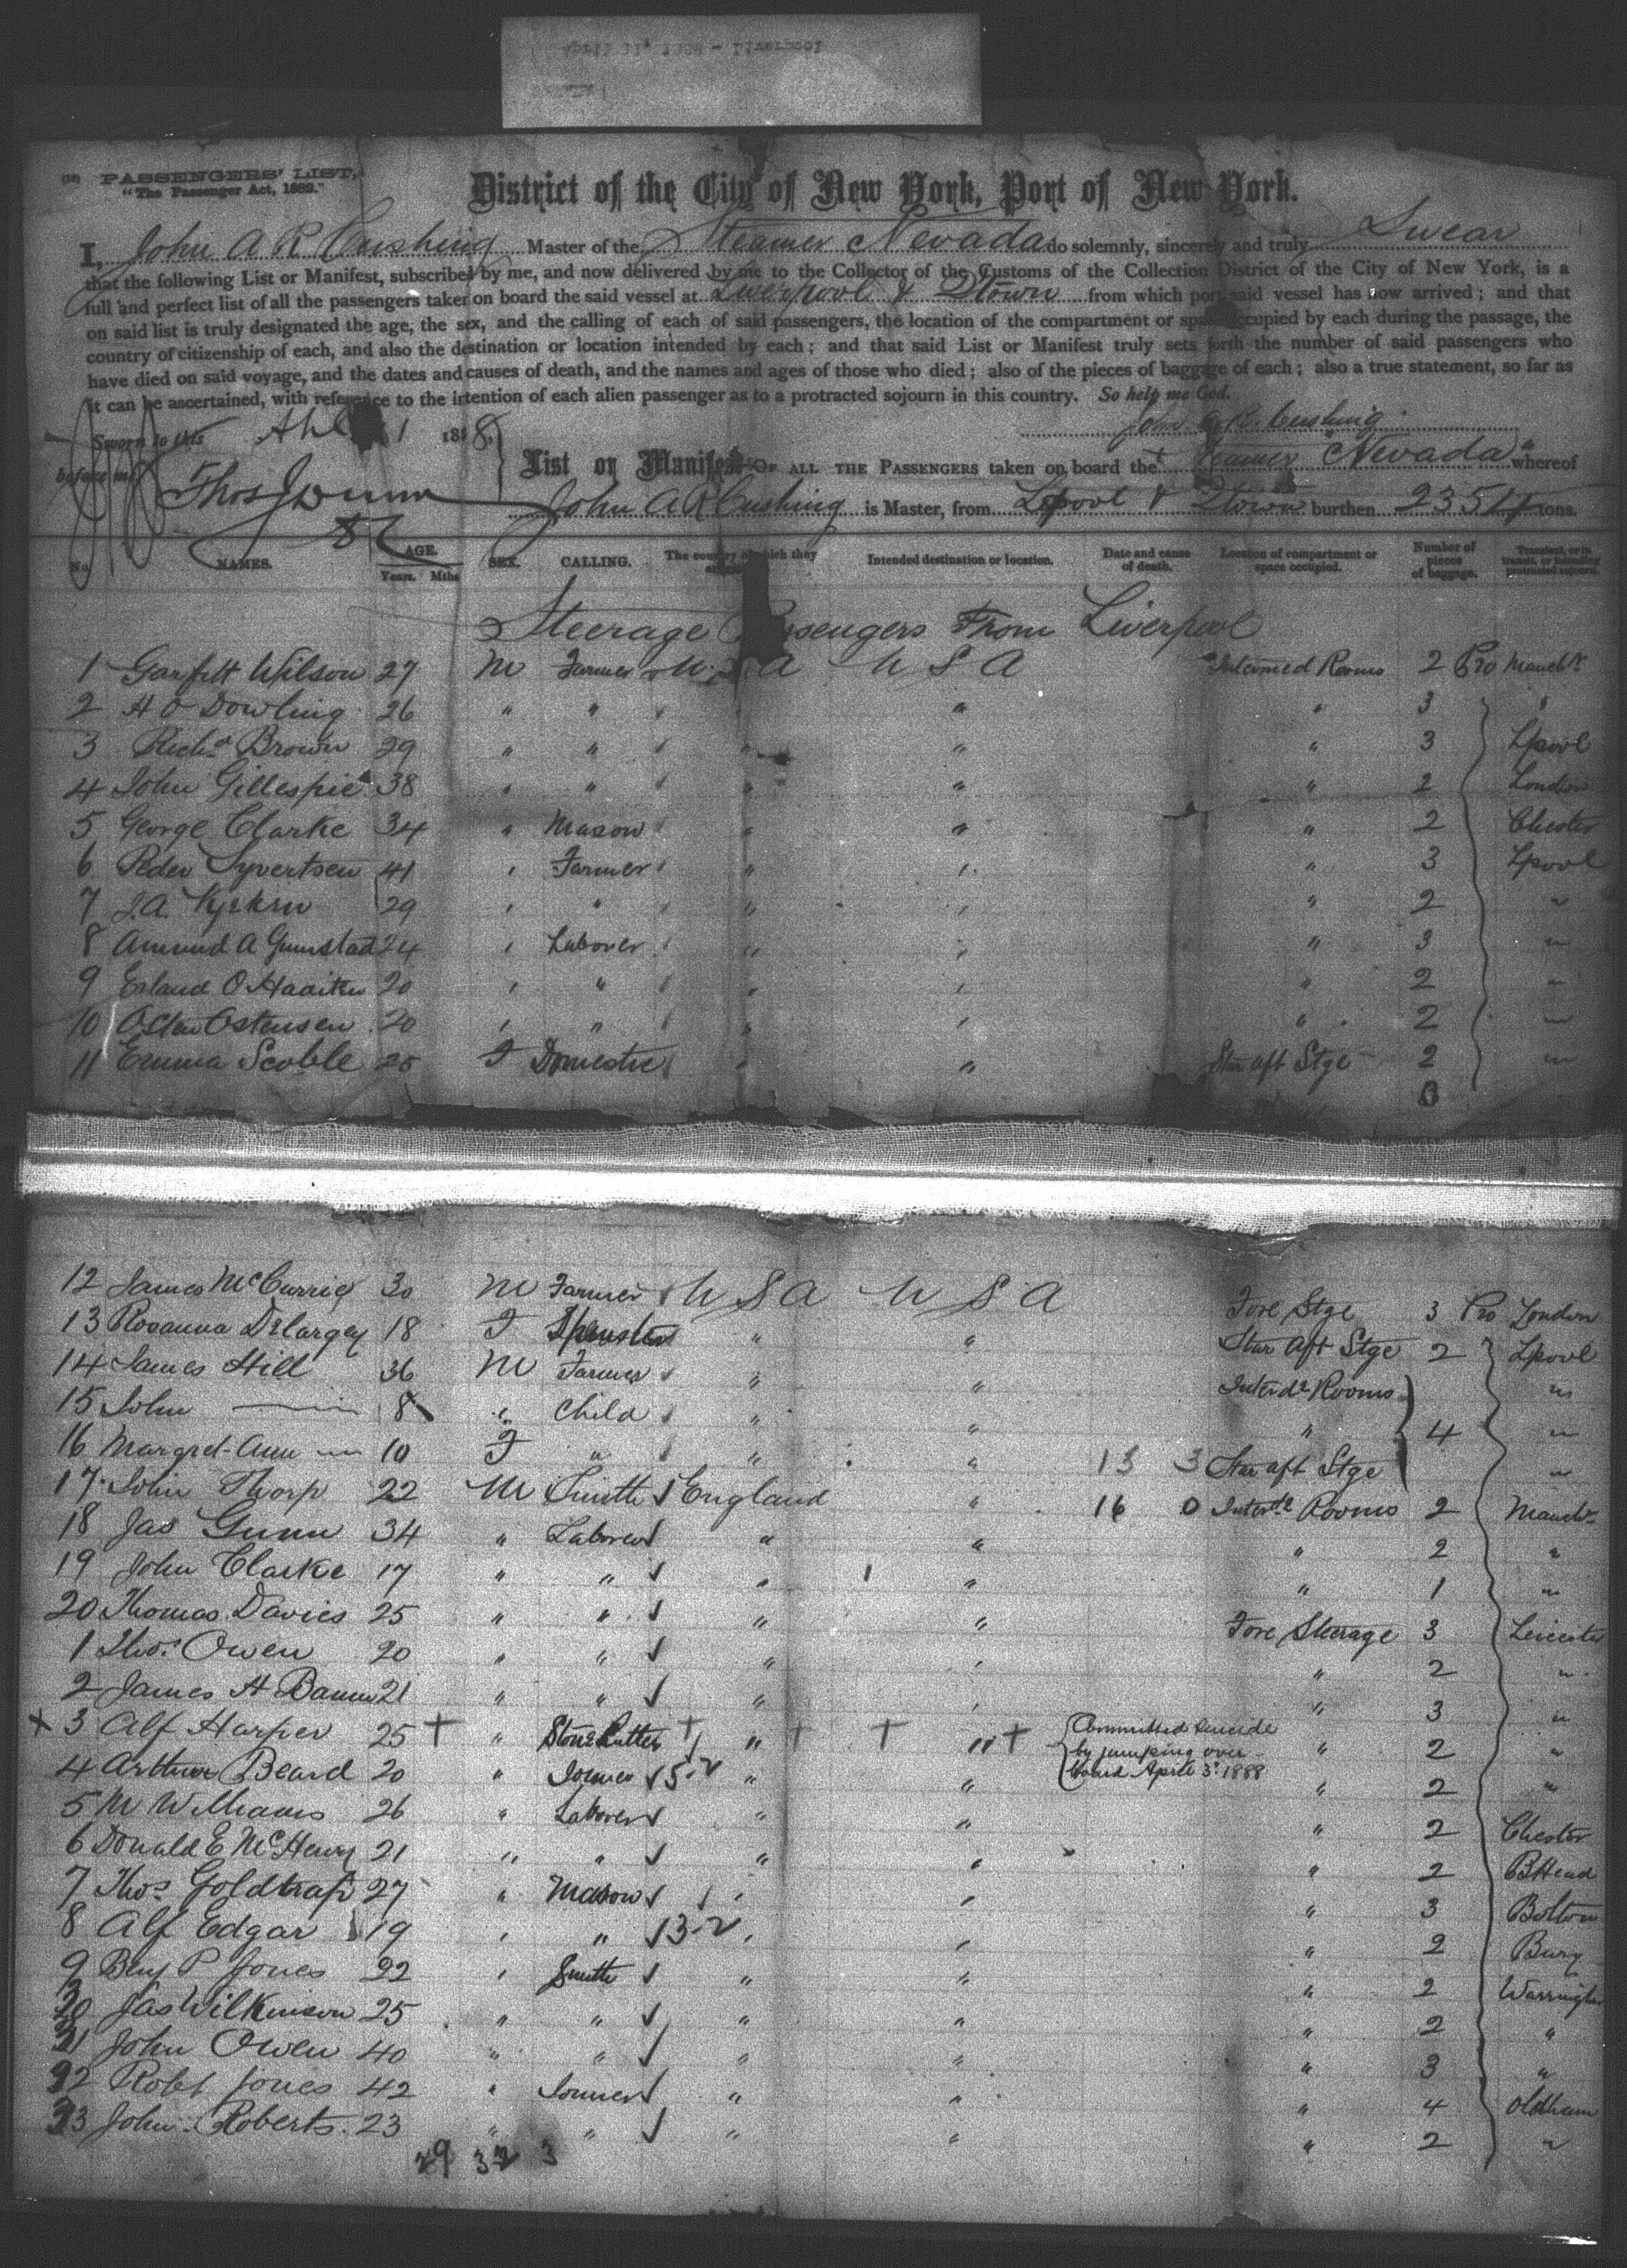 April 11, 1888 - Liverpool
(12) PASSENGERS' LIST,
"The Passenger Act, 1882."
District of the City of New York, Port of New York.
I, John A R Cushing Master of the Steamer Nevada do solemnly, sincerely and truly Swear
that the following List or Manifest, subscribed by me, and now delivered by me to the Collector of the Customs of the Collection District of the City of New York, is a
full and perfect list of all the passengers taken on board the said vessel at Liverpool & Qtown from which port said vessel has now arrived; and that
on said list is truly designated the age, the sex, and the calling of each of said passengers, the location of the compartment or space occupied by each during the passage, the
country of citizenship of each, and also the destination or location intended by each; and that said List or Manifest truly sets forth the number of said passengers who
have died on said voyage, and the dates and causes of death, and the names and ages of those who died; also of the pieces of baggage of each; also a true statement, so far as
it can be ascertained, with reference to the intention of each alien passenger as to a protracted sojourn in this country. So help me God.
Sworn to this 1 1888 John A. R. Cushing
before me
Thos J Dunn
List or Manifest OF ALL THE PASSENGERS taken on board the Steamer "Nevada" whereof
John A R Cushing is Master, from Lpool & Qtown burthen 2351 tons.
No. NAMES. AGE. Years. Mths SEX. CALLING. The country of which they Intended destination or location. Date and cause of death. Location of compartment or space occupied. Number of pieces of baggage. Transient, or in transit, or intending protracted sojourn.
Steerage Passengers From Liverpool
1 Wilson 27 M Farmer U S A U S A Intermed Rooms 2 Pro Manchr
2 H O Dowling 26 " " " " 3 "
3 Richd Brown 29 " " " " " 3 Lpool
4 John Gillespie 38 " " " " " 2 London
5 George Clarke 34 " Mason " " " 2 Chester
6 Peder Syvertsen 41 " Farmer " " " 3 Lpool
7 J.A. 29 " " " " " 2 "
8 Amund A Gunstad 24 " Laborer " " " 3 "
9 Erland O 20 " " " " " 2 "
10 Osten Ostensen 20 " " " " " 2 "
11 Emma Scoble 25 F Domestic " " Star aft Stge 2 "
12 James McCurrie 30 M Farmer U S A U S A Fore Stge 3 Pro London
13 Rosanna Delargey 18 F Spinster " " Star Aft Stge 2 Lpool
14 James Hill 36 M Farmer " " Intermde Rooms "
15 John — 8 " Child " " " 4 "
16 Margret Ann — 10 F " " " 13 3 Star aft Stge "
17 John Thorp 22 M Smith England " 16 0 Intermde Rooms 2 Manchr
18 Jas Gunn 34 " Laborer " " " 2 "
19 John Clarke 17 " " " 1 " " 1 "
20 Thomas Davies 25 " " " " Fore Steerage 3 Leicester
1 Thos. Owen 20 " " " " " 2 "
2 James H 21 " " " " " 3 "
x 3 Alf Harper 25 + " Stone Cutter + " + + " + Committed Suicide " 2 "
by jumping over
board April 3d 1888
4 Arthur Beard 20 " Joiner 5-2 " " " 2 "
5 M Williams 26 " Laborer " " " 2 Chester
6 Donald E McHenry 21 " " " " " 2 BHead
7 Thos Goldthrap 27 " Mason " " " 3 Bolton
8 Alf Edgar 19 " " 13-2 " " " 2 Bury
9 Benj P Jones 22 " Smith " " " 2 Warrington
30 Jas Wilkinson 25 " " " " " 2 "
31 John Owen 40 " " " " " 3 "
32 Robt Jones 42 " Joiner " " " 4 Oldham
33 John Roberts 23 " " " " " 2 "
29 32 3